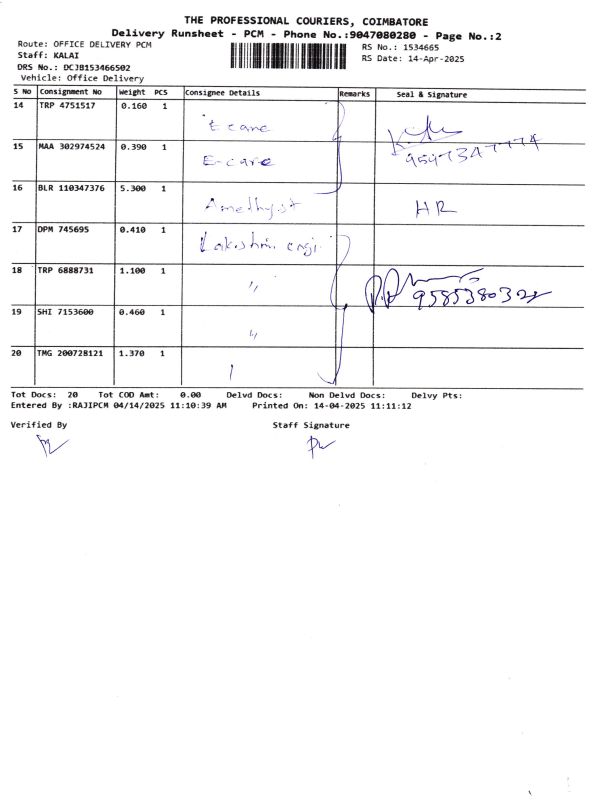 THE PROFESSIONAL COURIERS, COIMBATORE
Delivery Runsheet - PCM - Phone No.:9047080280 - Page No.:2
Route: OFFICE DELIVERY PCM
Staff: KALAI
DRS No.: DCJB153466502
Vehicle: Office Delivery
RS No.: 1534665
RS Date: 14-Apr-2025
S No Consignment No Weight PCS Consignee Details Remarks Seal & Signature
14 TRP 4751517 0.160 1 Ecare
15 MAA 302974524 0.390 1 E-care
16 BLR 110347376 5.300 1 Amethyst HR
17 DPM 745695 0.410 1 Lakshmi engi.
18 TRP 6888731 1.100 1 〃
19 SHI 7153600 0.460 1 〃
20 TMG 200728121 1.370 1
Tot Docs: 20 Tot COD Amt: 0.00 Delvd Docs: Non Delvd Docs: Delvy Pts:
Entered By :RAJIPCM 04/14/2025 11:10:39 AM Printed On: 14-04-2025 11:11:12
Verified By Staff Signature